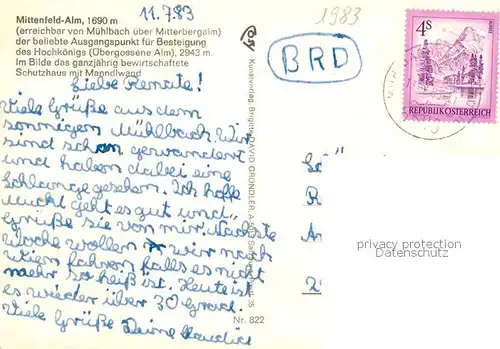 Mittenfeld-Alm, 1690 m
(erreichbar von Mühlbach über Mitterbergalm)
der beliebte Ausgangspunkt für Besteigung
des Hochkönigs (Übergossene Alm), 2943 m.
Im Bilde das ganzjährig bewirtschaftete
Schutzhaus mit Manndlwand
11.7.83
1983
BRD
4S
REPUBLIK ÖSTERREICH
Liebe Renate!
Viele Grüße aus dem
sonnigen Mühlbach. Wir
sind schon gewandert
und haben dabei eine
Schlange gesehen. Ich hoffe
geht es gut und
grüße sie von mir. Nächste
Woche wollen wir nach
Wien fahren falls es nicht
mehr so heiß ist. Heute ist
es wieder über 30 Grad.
Viele Grüße Deine Claudia
Kunstverlag Brigitte DAVID-GRÜNDLER, A
Nr. 822
privacy protection
Datenschutz